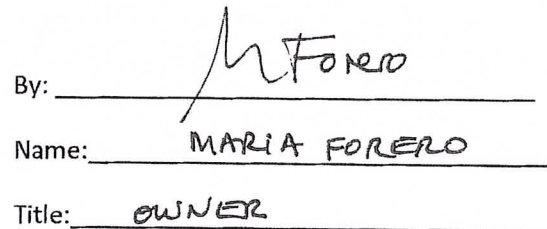 By: M Forero
Name: MARIA FORERO
Title: OWNER